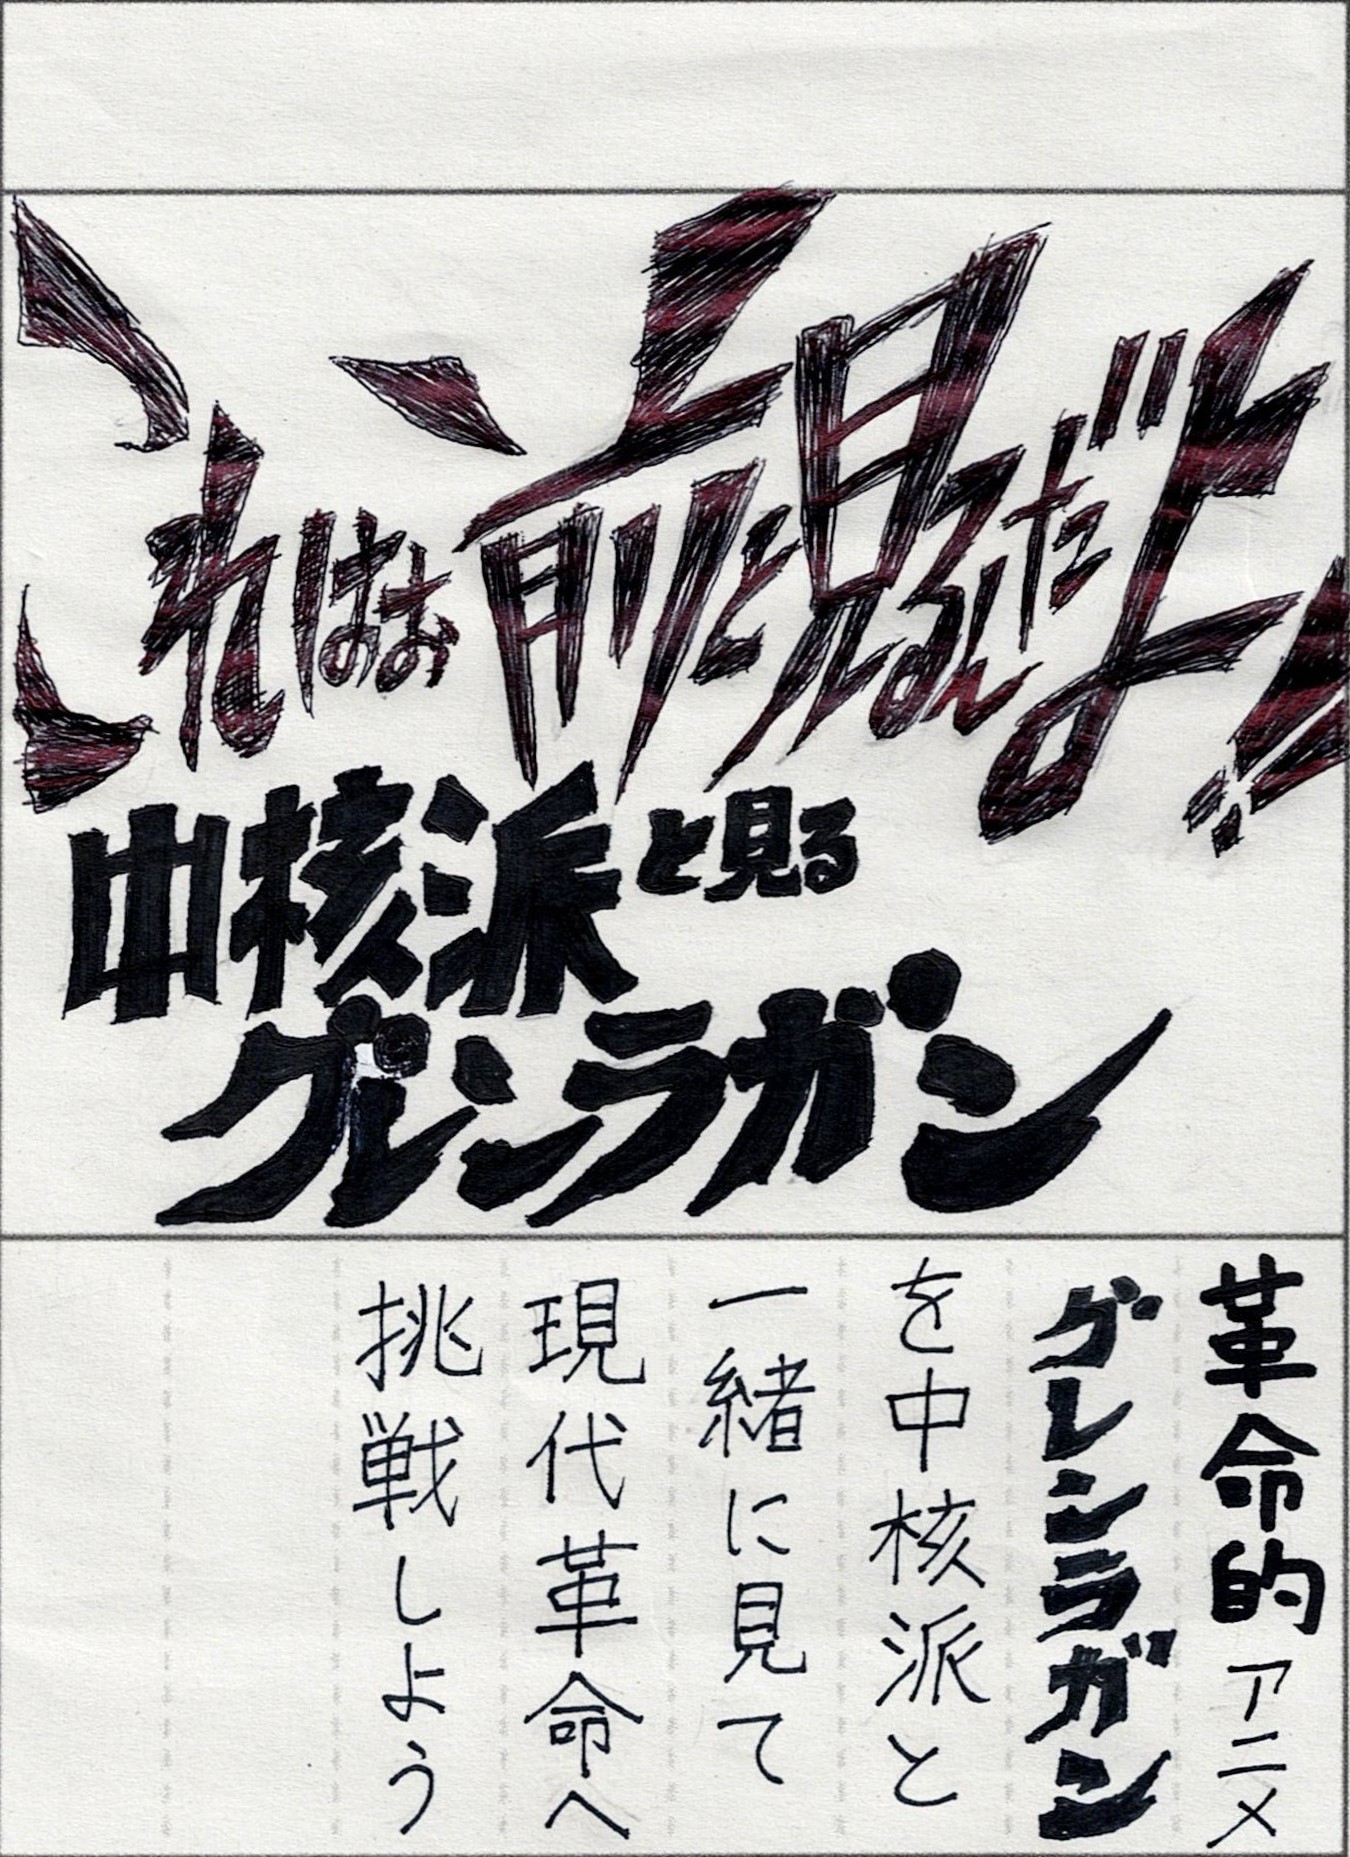 これはお前と見るんだよ!!
中核派と見る
グレンラガン
革命的アニメ
グレンラガン
を中核派と
一緒に見て
現代革命へ
挑戦しよう